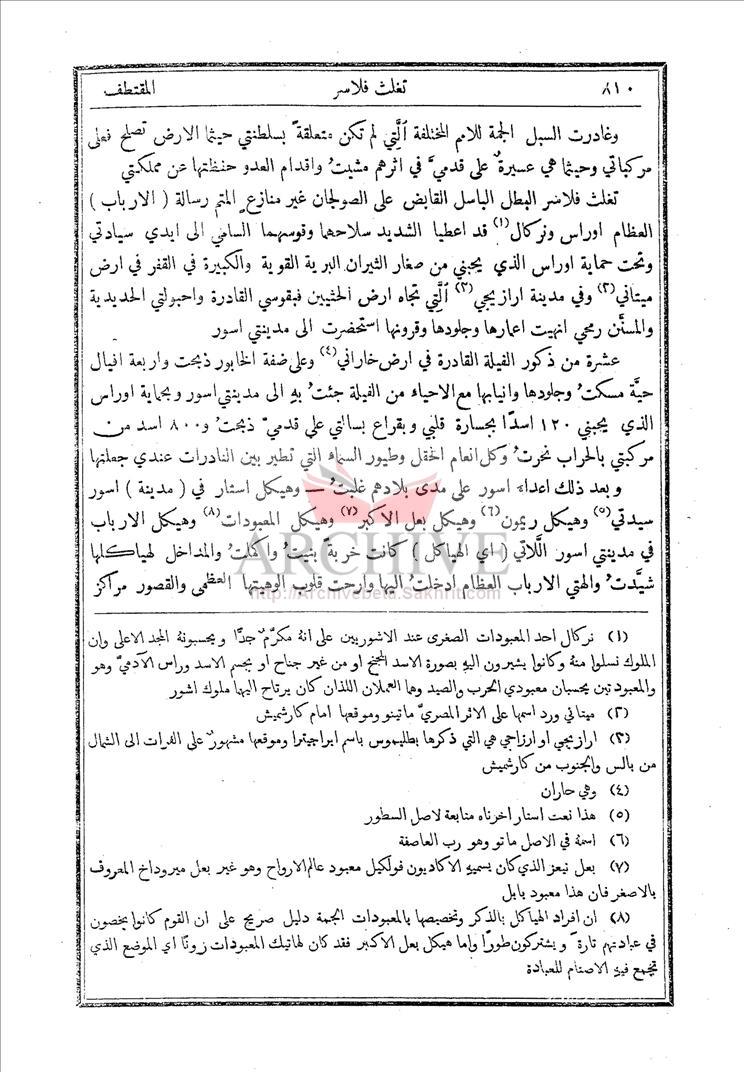 ٨١٠ تغلث فلاسر المقتطف
وغادرت السبل الجمة للامم المختلفة الَّتي لم تكن متعلقة بسلطنتي حيثما الارض تصلح فعلى
مركباتي وحيثما هي عسيرةٌ على قدميَّ في اثرهم مشيتُ واقدام العدو حفظتها عن مملكتي
تغلث فلاسر البطل الباسل القابض على الصولجان غير منازع المتم رسالة ( الارباب )
العظام اوراس ونركال(١) قد اعطيا الشديد سلاحهما وقوسهما السامي الى ايدي سيادتي
وتحت حماية اوراس الذي يحبني من صغار الثيران البرية القوية والكبيرة في القفر في ارض
ميتاني(٢) وفي مدينة ارازيجي(٣) الَّتي تجاه ارض الحثيين فبقوسي القادرة واحبولتي الحديدية
والمسنَّن رمحي انهيت اعمارها وجلودها وقرونها استحضرت الى مدينتي اسور
عشرة من ذكور الفيلة القادرة في ارض خاراني(٤) وعلى ضفة الخابور ذبحت واربعة افيال
حيَّة مسكتُ وجلودها وانيابها مع الاحياء من الفيلة جئتُ بهِ الى مدينتي اسور وبحماية اوراس
الذي يحبني ١٢٠ اسدًا بجسارة قلبي وبقراع بسالتي على قدميّ ذبحتُ و٨٠٠ اسد من
مركبتي بالحراب نحرتُ وكل انعام الحقل وطيور السماء التي تطير بين النادرات عندي جعلتها
وبعد ذلك اعداء اسور على مدى بلادهم غلبتُ — وهيكل استار في ( مدينة ) اسور
سيدتي(٥) وهيكل ريمون(٦) وهيكل بعل الاكبر(٧) وهيكل المعبودات(٨) وهيكل الارباب
في مدينتي اسور اللَّاتي ( اي الهياكل ) كانت خربةً بنيتُ واكملتُ والمداخل لهياكلها
شيَّدتُ والهتي الارباب العظام ادخلتُ اليها وارحت قلوب الوهيتها العظمى والقصور مراكز
(١) نركال احد المعبودات الصغرى عند الاشوريين على انهُ مكرَّم جدًّا ويحسبونهُ المجد الاعلى وان
الملوك نسلوا منهُ وكانوا يشيرون اليهِ بصورة الاسد المجنح او من غير جناح او بجسم الاسد وراس الآدميّ وهو
والمعبود تين يحسبان معبودي الحرب والصيد وهما العملان اللذان كان يرتاح اليهما ملوك اشور
(٢) ميتاني ورد اسمها على الاثر المصريّ ماتينو وموقعها امام كارشميش
(٣) ارازيجي او ارزاجي هي التي ذكرها بطليموس باسم ابراجيترا وموقعها مشهورٌ على الفرات الى الشمال
من بالس والجنوب من كارشميش
(٤) وهي حاران
(٥) هذا نعت استار اخرناه متابعة لاصل السطور
(٦) اسمهُ في الاصل ماتو وهو رب العاصفة
(٧) بعل نيعز الذي كان يسميهِ الاكاديون فولكيل معبود عالم الارواح وهو غير بعل ميروداخ المعروف
بالاصغر فان هذا معبود بابل
(٨) ان افراد الهياكل بالذكر وتخصيصها بالمعبودات الجمة دليل صريح على ان القوم كانوا يخصون
في عبادتهم تارةً ويشتركون طورًا واما هيكل بعل الاكبر فقد كان لهاتيك المعبودات زونًا اي الموضع الذي
تجمع فيهِ الاصنام للعبادة
ARCHIVE
http://Archivebeta.Sakhrit.com